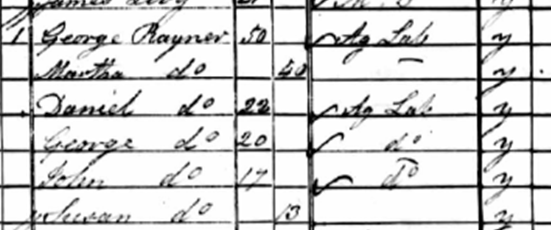 1 George Rayner 50 Ag Lab y
Martha do 40 – y
Daniel do 22 Ag Lab y
George do 20 do y
John do 17 do y
Susan do 13 y